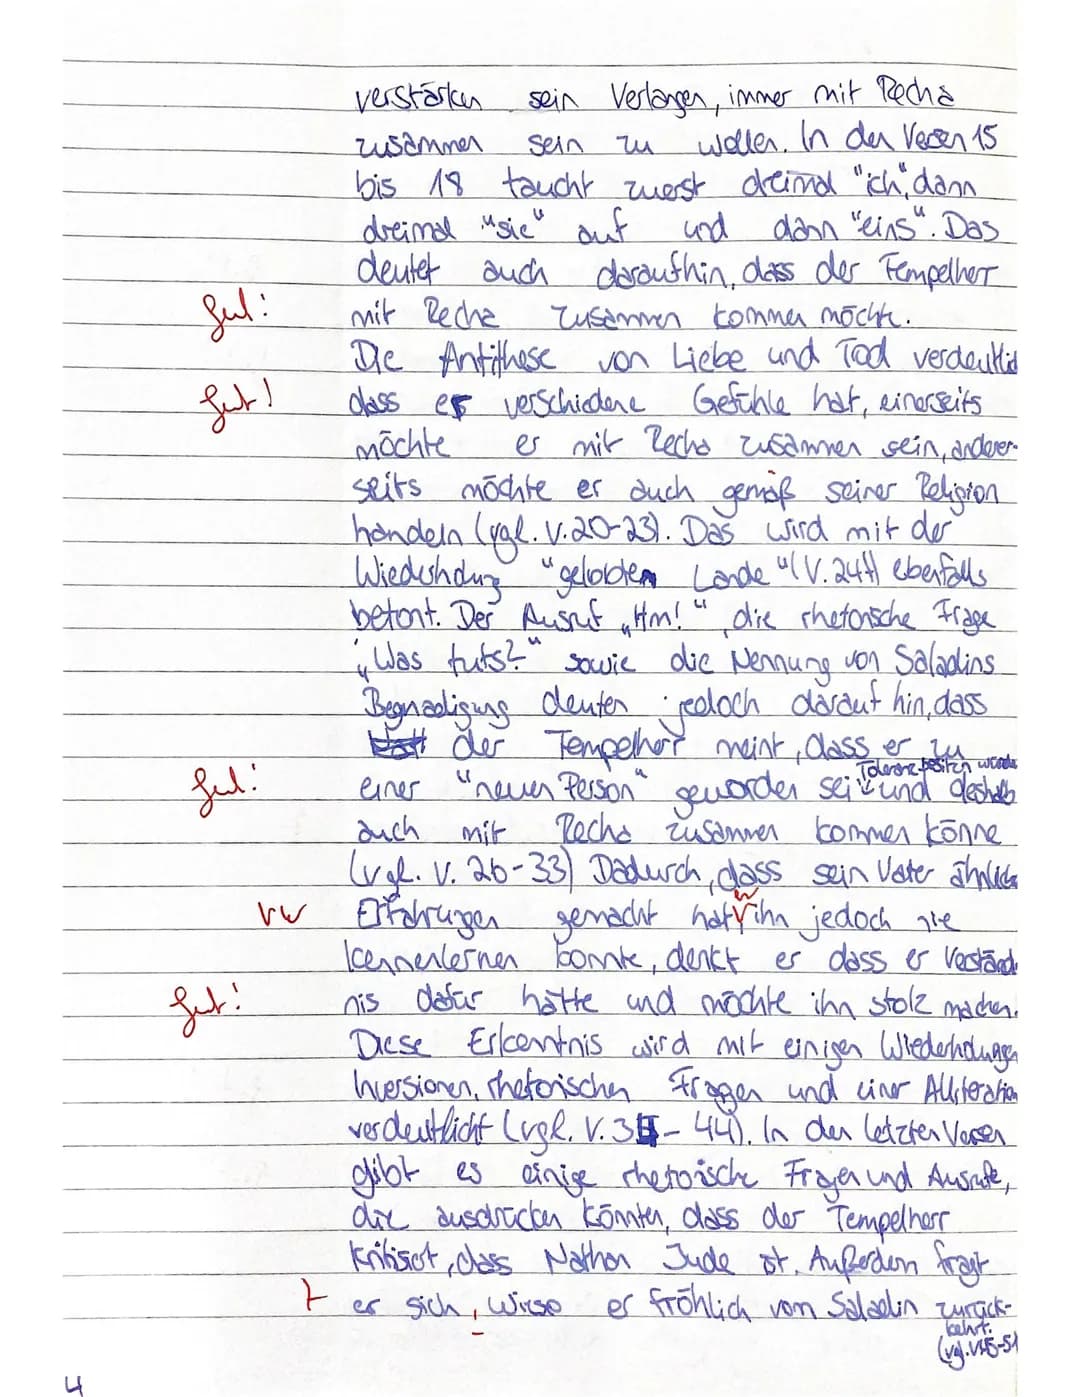 verstärken sein Verlangen, immer mit Recha
zusammen sein zu wollen. In den Versen 15
bis 18 taucht zuerst dreimal "ich", dann
dreimal "sie" auf und dann "eins". Das
deutet auch daraufhin, dass der Tempelherr
gut! mit Recha zusammen kommen möchte.
Die Antithese von Liebe und Tod verdeutlich
gut! dass er verschiedene Gefühle hat, einerseits
möchte er mit Recha zusammen sein, anderer-
seits möchte er auch gemäß seiner Religion
handeln (vgl. V. 20-23). Das wird mit der
Wiederholung "gelobten Lande" (V. 24f) ebenfalls
betont. Der Ausruf „Hm!", die rhetorische Frage
„Was tuts?" sowie die Nennung von Saladins
Begnadigung deuten jedoch darauf hin, dass
der Tempelherr meint, dass er zu
Toleranz besitzen würde
gut! einer "neuen Person" geworden sei und deshalb
auch mit Recha zusammen kommen könne
(vgl. V. 26-33) Dadurch, dass sein Vater ähnliche
vw Erfahrungen gemacht hat, er ihn jedoch nie
kennenlernen konnte, denkt er dass er Verständ-
gut! nis dafür hätte und möchte ihn stolz machen.
Diese Erkenntnis wird mit einigen Wiederholungen
Inversionen, rhetorischen Fragen und einer Alliteration
verdeutlicht (vgl. V. 3 - 44). In den letzten Versen
gibt es einige rhetorische Fragen und Ausrufe,
die ausdrücken könnten, dass der Tempelherr
kritisiert, dass Nathan Jude ist. Außerdem fragt
Z er sich, wieso er fröhlich vom Saladin zurück-
kehrt.
(vgl. V. 45-51
4